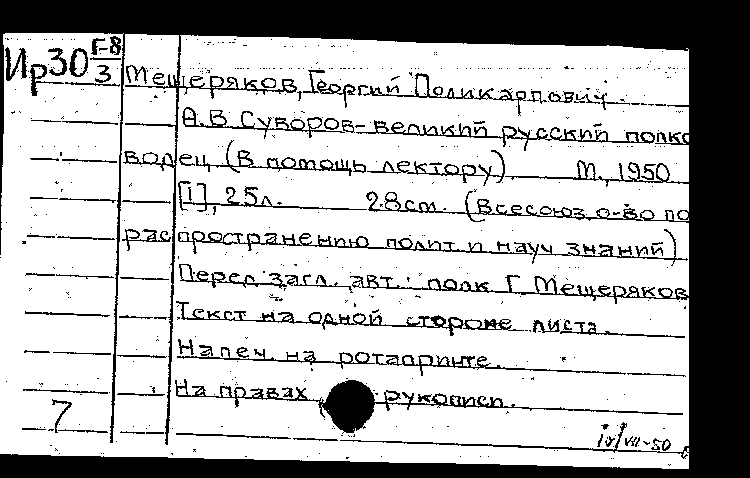 Ир30 Г-8/3
Мещеряков, Георгий Поликарпович
А.В Суворов-великий русский полко
водец (В помощь лектору). М., 1950
[1], 25л. 28см. (Всесоюз о-во по
распространению полит и науч знаний)
Перед загл. авт.: полк Г Мещеряков
Текст на одной стороне листа.
Напеч. на ротапринте.
На правах рукописи.
7